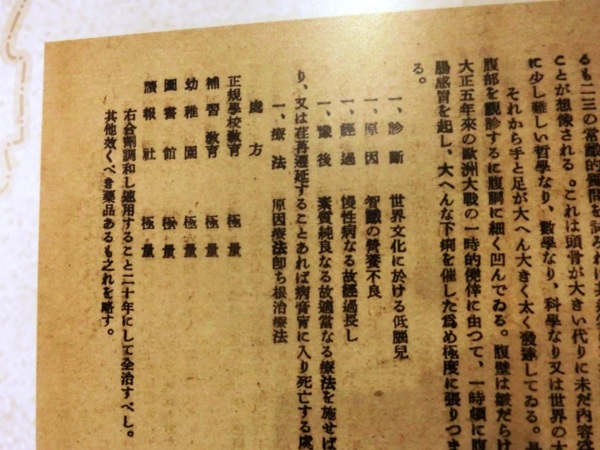 るも二三の常識的質問を試みれば其
ことが想像される。これは頭骨が大きい代りに未だ内容
に少し難しい哲學なり、數學なり、科學なり又は世界の大
それから手と足が大へん大きく太く發達してゐる。
腹部を觀診するに腹胴に細く凹んでゐる。腹壁は皺だらけ
大正五年來の歐洲大戰の一時的僥倖に由つて、一時頻に腹
腸感冒を起し、大へんな下痢を催した爲め極度に張りつま
る。
一、診斷 世界文化に於ける低腦兒
一、原因 智識の營養不良
一、經過 慢性病なる故經過長し
一、豫後 素質純良なる故適當なる療法を施せば
り、又は荏苒遷延することあれば病膏肓に入り死亡する虞
一、療法 原因療法即ち根治療法
處方
正規學校教育 極量
補習教育 極量
幼稚園 極量
圖書館 極量
讀報社 極量
右合劑調和し連用すること二十年にして全治すべし。
其他效くべき藥品あるも之れを略す。